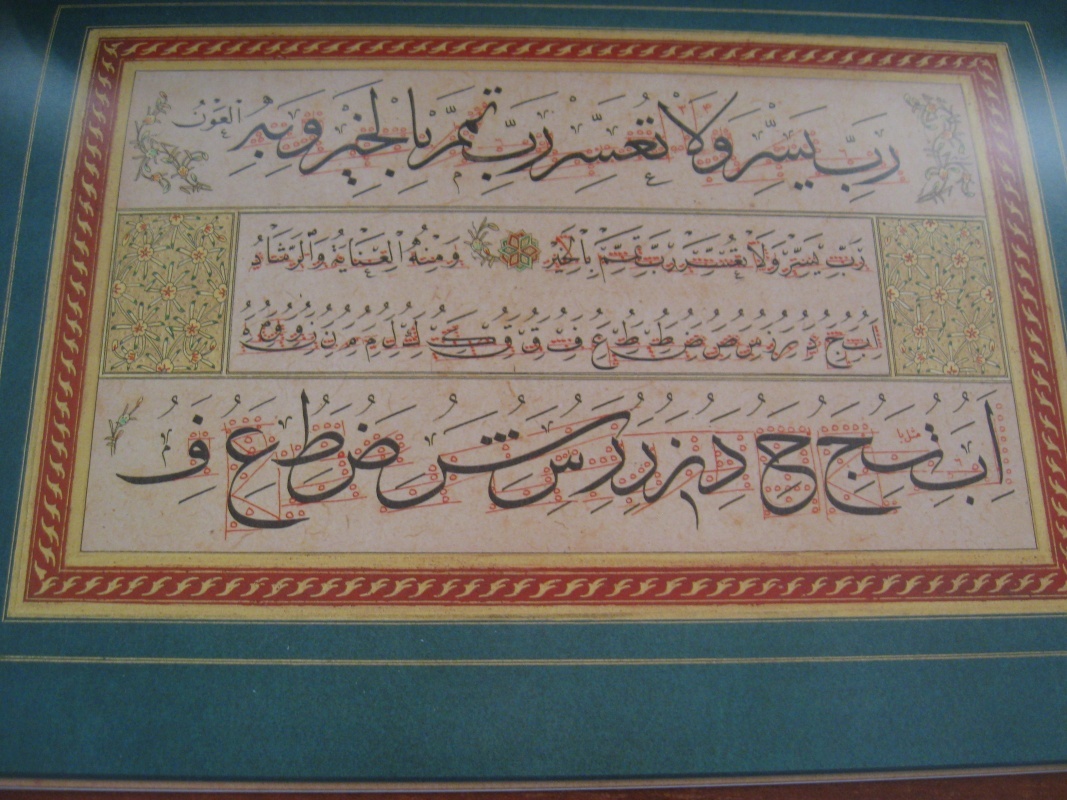 رَبِّ يَسِّرْ وَلَا تُعَسِّرْ رَبِّ تَمِّمْ بِالْخَيْرِ وَبِهِ الْعَوْنُ
رَبِّ يَسِّرْ وَلَا تُعَسِّرْ رَبِّ تَمِّمْ بِالْخَيْرِ وَمِنْهُ الْعِنَايَةُ وَالرَّشَادُ
ا ب ج د ر ز س ص ض ط ظ ع ف ق ك ل م ن و
ا ب ت ج ح د ز ر س ش ض ط ع ف